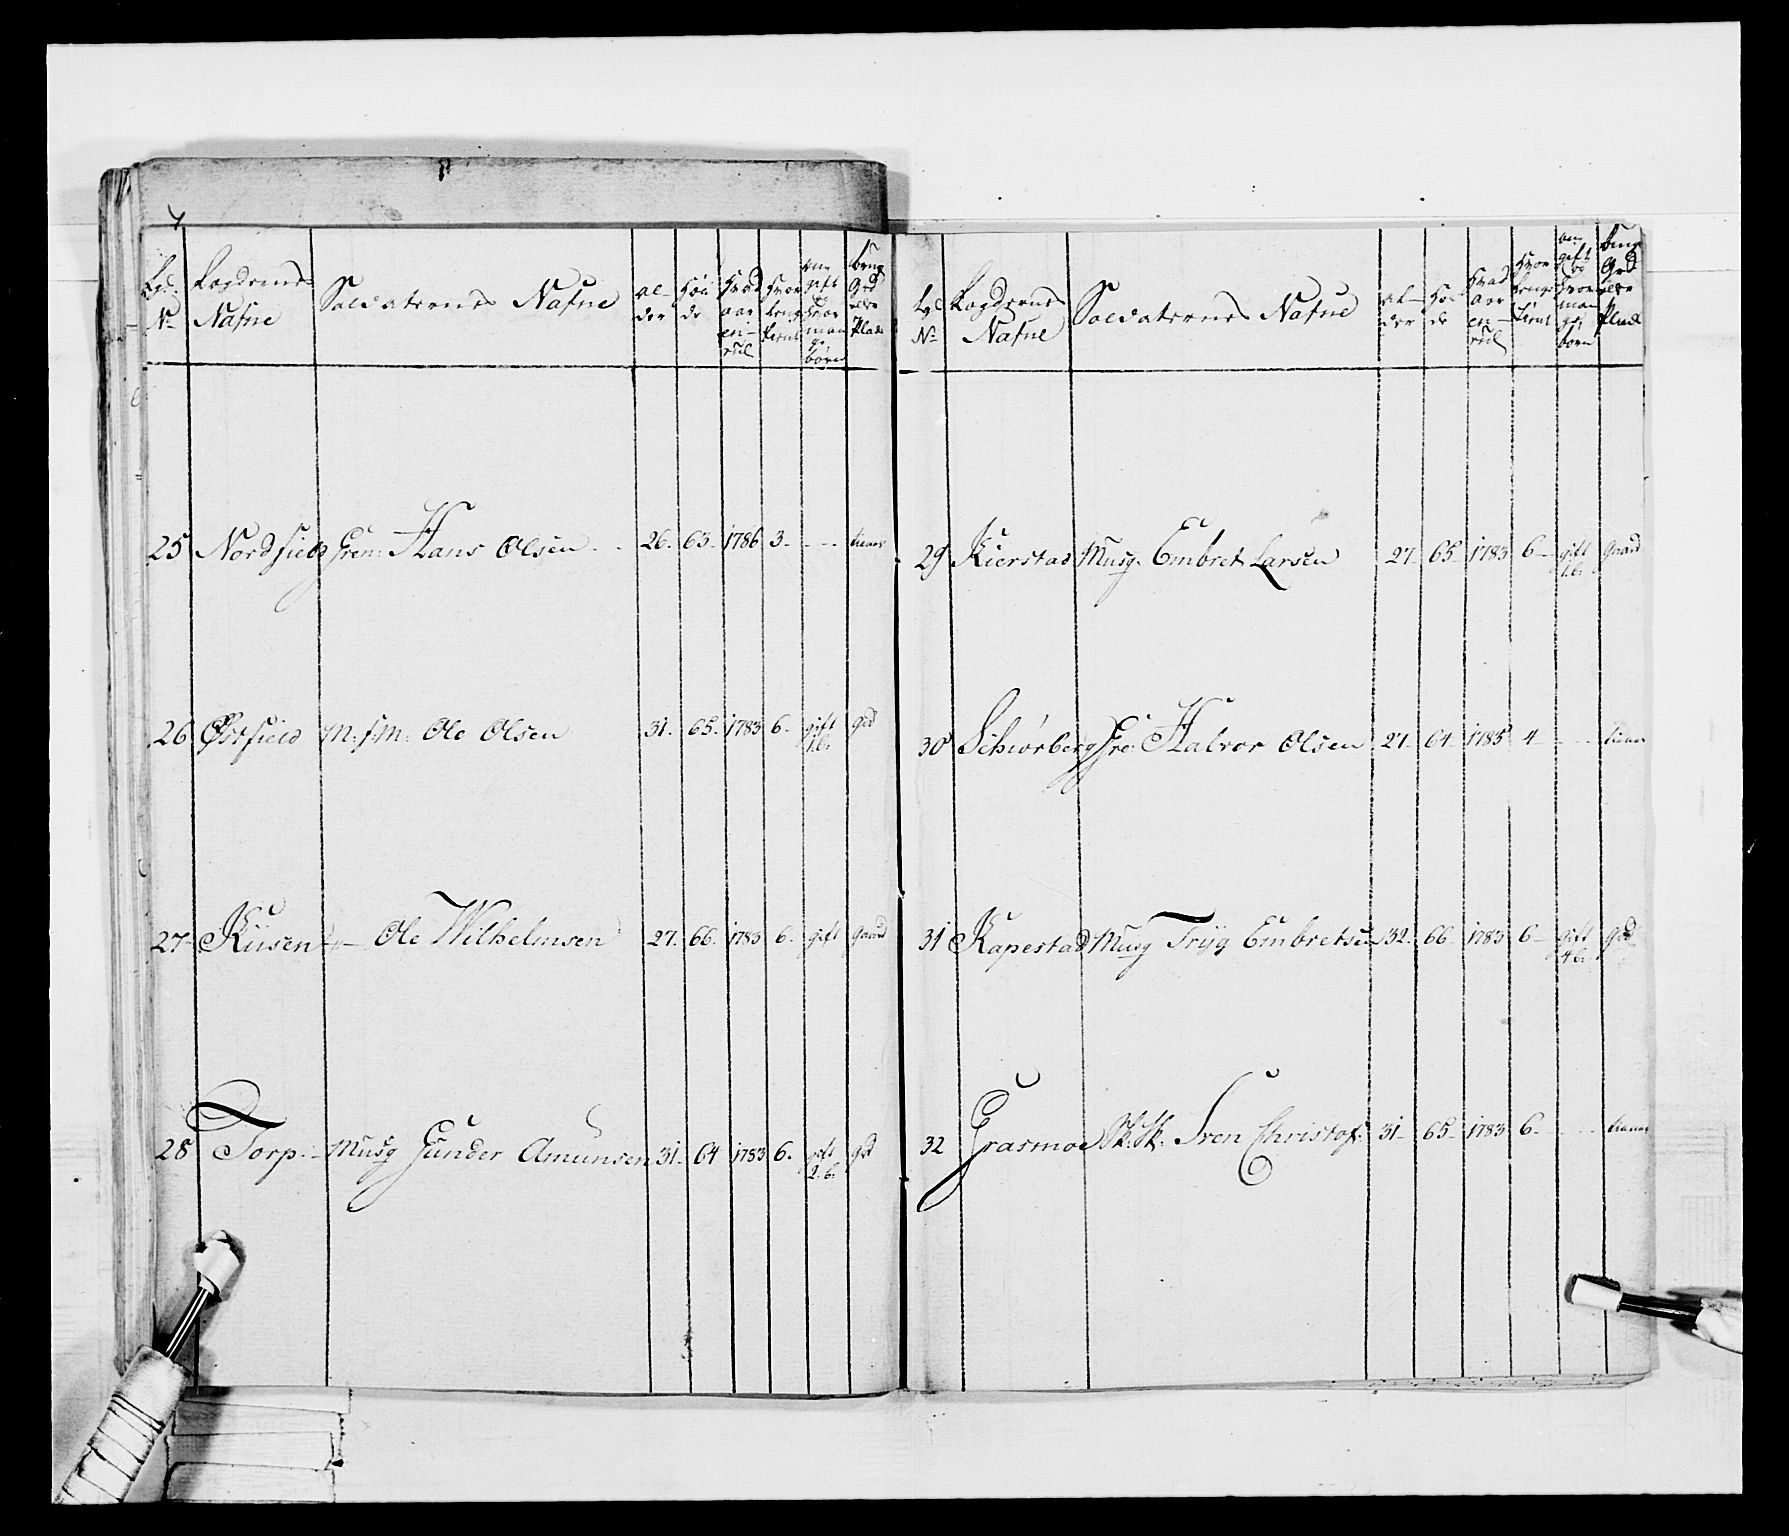 Lgd: N° Lægdernes Nafne Soldaternes Nafne al- der Høi de Hvad aar en- rul Hvor længe tient om gift & hvor man ge børn brug Grd eller Plads
25 Nordfield Gren: Hans Olsen 26. 63. 1786 3. - - tiener
26 Østfield M: f: M: Ole Olsen 31. 65. 1783 6. gift 1 b: grd
27 Kiisen Ole Wilhelmsen 27. 66. 1783 6. gift Gaard
28 Torp. Musq Gunder Amunsen 31. 64 1783 6. gift 2. b. grd
Lgd N° Lægdernes Nafne Soldaternes Nafne al- der Høi de Hvad aar en- rul Hvor længe tient om gift og hvor man ge børn brug Grd eller Plads
29 Kierstad Musq. Embret Larsen 27. 65. 1783 6 gift 1 b. Gaard
30 Schiørberg Gre: Halvor Olsen 27 64 1785 4 - - tiener
31 Rapestad Musq Tryg Embretsen 32. 66 1783 6 gift 4 b. grd
32 Grasmoe Sk: Sk: Sven Christof: 31 65 1783 6 - - tiener